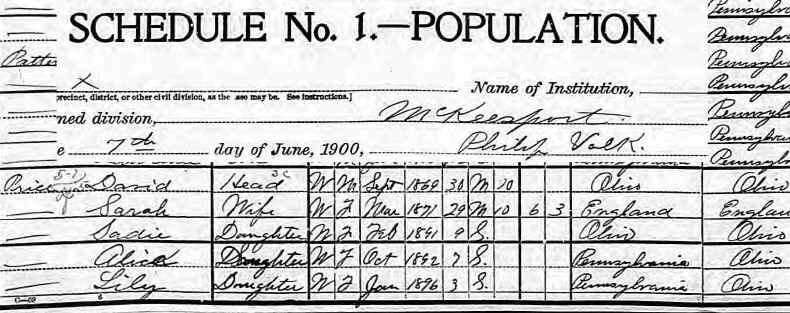 SCHEDULE No. 1.—POPULATION.
X
Name of Institution,
precinct, district, or other civil division, as the case may be. See instructions.]
ned division, McKeesport.
e 7th day of June, 1900, Philip Volk.
Price David Head W M Sept 1869 30 M 10 Ohio Ohio
— Sarah Wife W F Mar 1871 29 M 10 6 3 England Englan
— Sadie Daughter W F Feb 1891 9 S. Ohio Ohio
— Alice Daughter W F Oct 1892 7 S. Pennsylvania Ohio
— Lily Daughter W F Jan 1896 3 S. Pennsylvania Ohio
Pennsylva
Pennsylva
Pennsylva
Pennsylv
Pennsylva
Pennsylva
Pennsylva